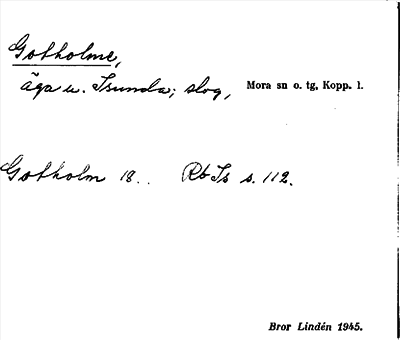 Gotholme,
äga u. Isunda; slog, Mora sn o. tg, Kopp. l.
Gotholm 18.. Rb Is s. 112.
Bror Lindén 1945.